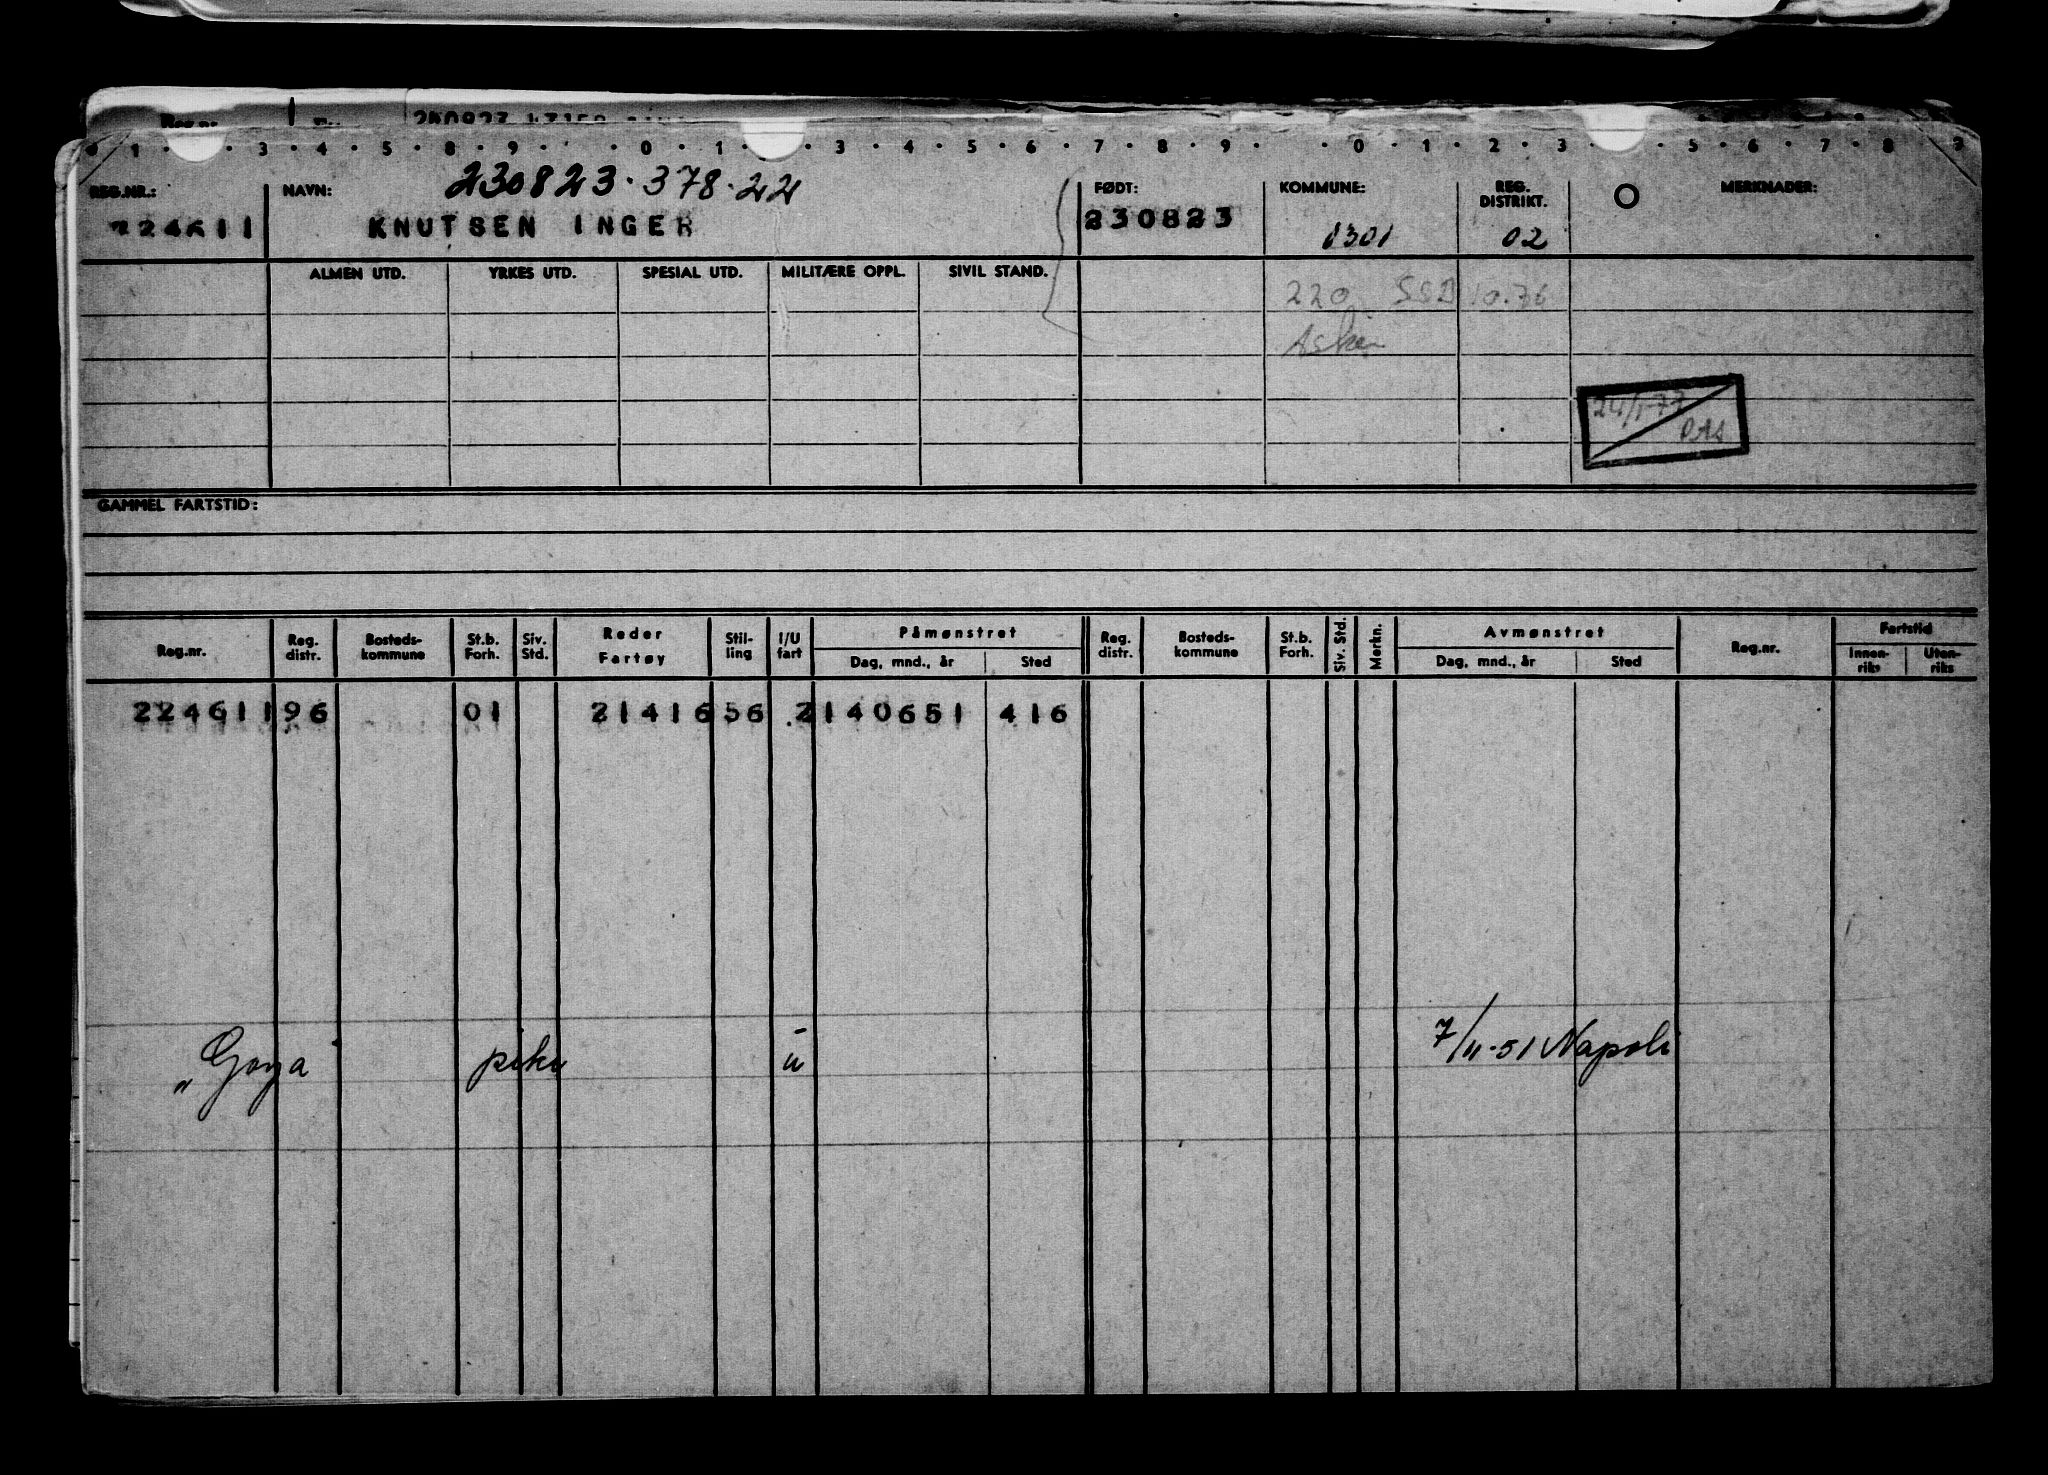 1 3 4 5 8 9 0 1 3 4 5 6 7 8 9 0 1 2 3 5 6 7 8
230823.378.22
REG.NR.: NAVN: FØDT: KOMMUNE: REG. DISTRIKT. MERKNADER:
224611 KNUTSEN INGER 230823 1301 02
ALMEN UTD. YRKES UTD. SPESIAL UTD. MILITÆRE OPPL. SIVIL STAND.
220 SSB 10.76
Asker
24/1-77
GAMMEL FARTSTID:
Reg.nr. Reg. distr. Bosteds-kommune St.b. Forh. Siv. Std. Reder Fartøy Stil-ling I/U fart Påmønstret Dag, mnd., år Sted Reg. distr. Bosteds-kommune St.b. Forh. Siv. Std. Merkn. Avmønstret Dag, mnd., år Sted Reg.nr. Fartstid Innen-riks Uten-riks
224611 96 01 21416 56 2 140651 416
"Goya" pike u 7/11-51 Napoli